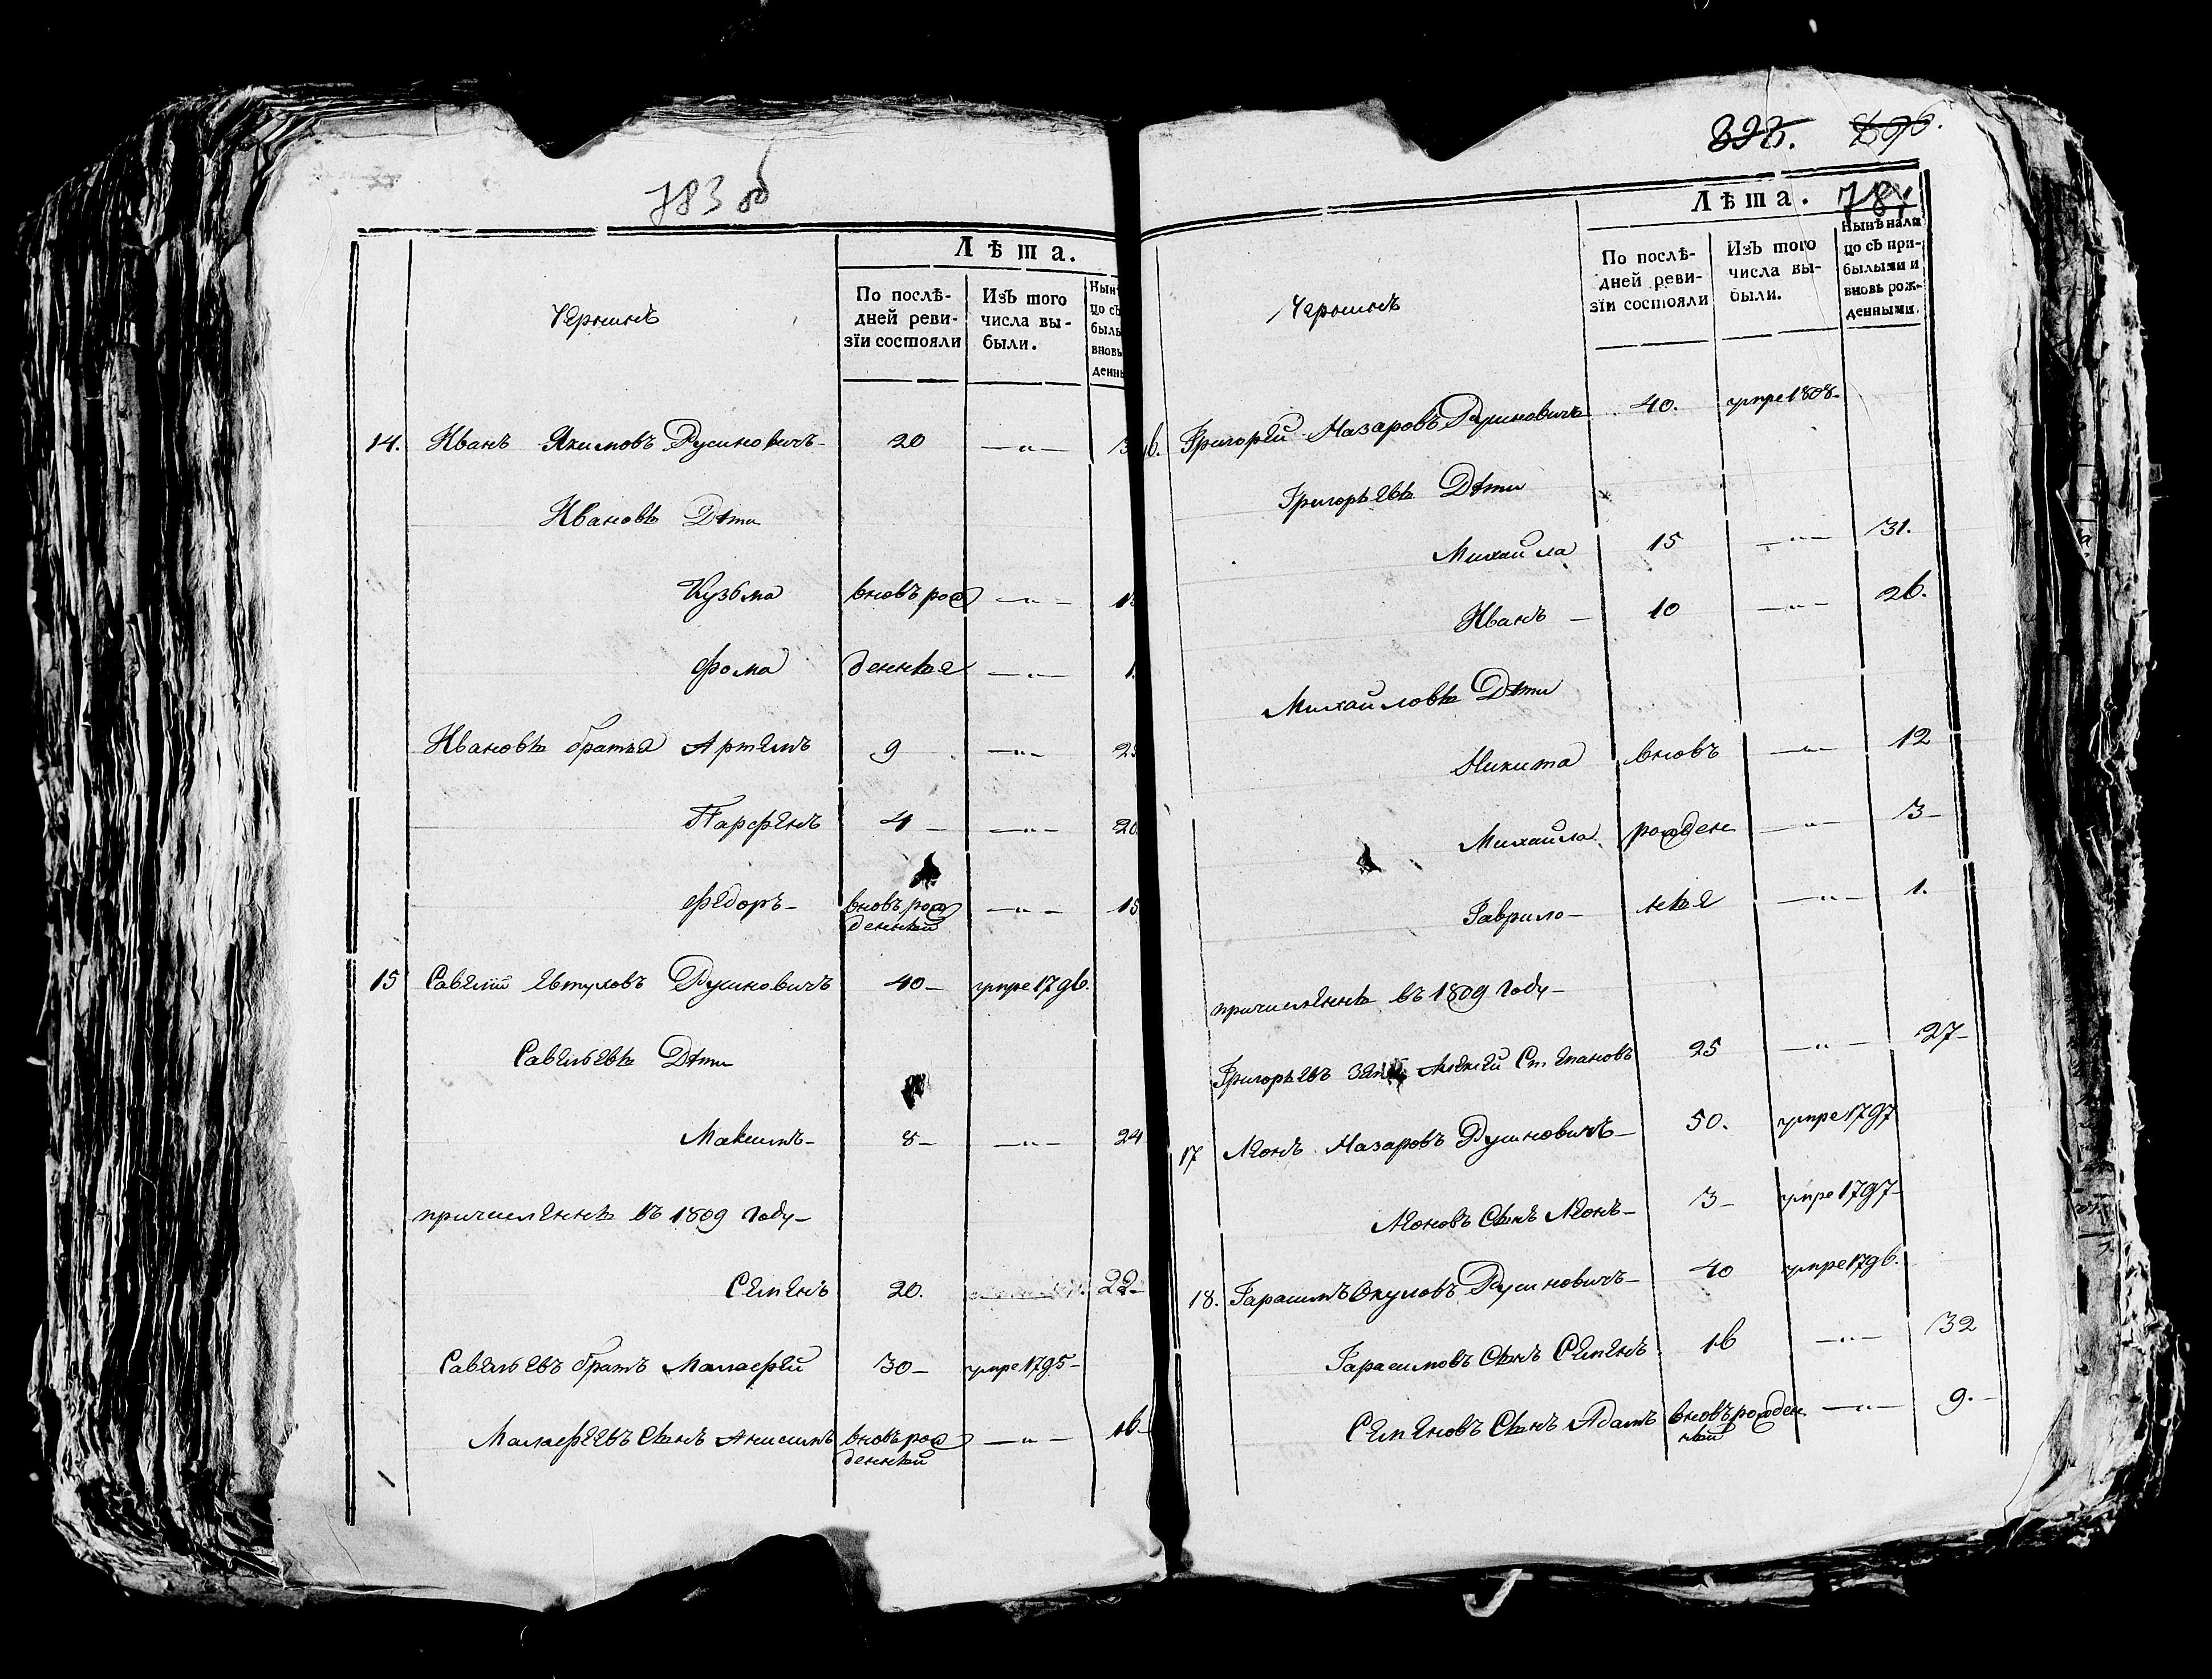 783 об
Лѣта.
Черминъ
По послѣ-
дней реви-
зїи состояли
Изъ того
числа вы-
были.
Нын
цо съ
былы
вновь
денн
14. Иванъ Якимовъ Русиновичъ - 20 — „ — 3
Ивановы Дѣти
Кузьма вновь рож — „ — 1
Фома денные — „ — 1
Ивановы братья Артемъ 9 — „ — 2
Парфенъ 4 — — „ — 20
Федоръ - вновь рож — „ — 15
денный
15 Савелий Евтуховъ Русиновичъ 40 - умре 1796.
Савельевы Дѣти
Максимъ - 8 - — „ — 24
причисленны въ 1809 году -
Семенъ 20. 22 -
Савельевъ братъ Маласфей 30 - умре 1795 -
Маласфеевъ Сынъ Анисимъ вновь рож — „ — 16 -
денный
898. 896.
784
Лѣта.
Черминъ
По послѣ-
дней реви-
зїи состояли
Изъ того
числа вы-
были.
Нынѣ нали
цо съ при-
былыми и
вновь рож-
денными.
16. Григорей Назаровъ Русиновичъ 40. умре 1808 -
Григорьевы Дѣти
Михайла 15 — „ — 31.
Иванъ - 10 — „ — 26.
Михайловы Дѣти
Никита вновь — „ — 12
Михайла рожден — „ — 3 -
Гаврило - ные — „ — 1.
причисленны въ 1809 году -
Григорьевъ зять Алексей Степановъ 25 — „ — 27 -
17 Леонъ Назаровъ Русиновичъ - 50. умре 1797
Леоновъ Сынъ Леонъ - 3 - умре 1797 -
18. Гарасимъ Окуловъ Русиновичъ - 40 умре 1796.
Гарасимовъ Сынъ Семенъ 16 — „ — 32
Семеновъ Сынъ Адамъ вновь рожден — „ — 9. -
ный